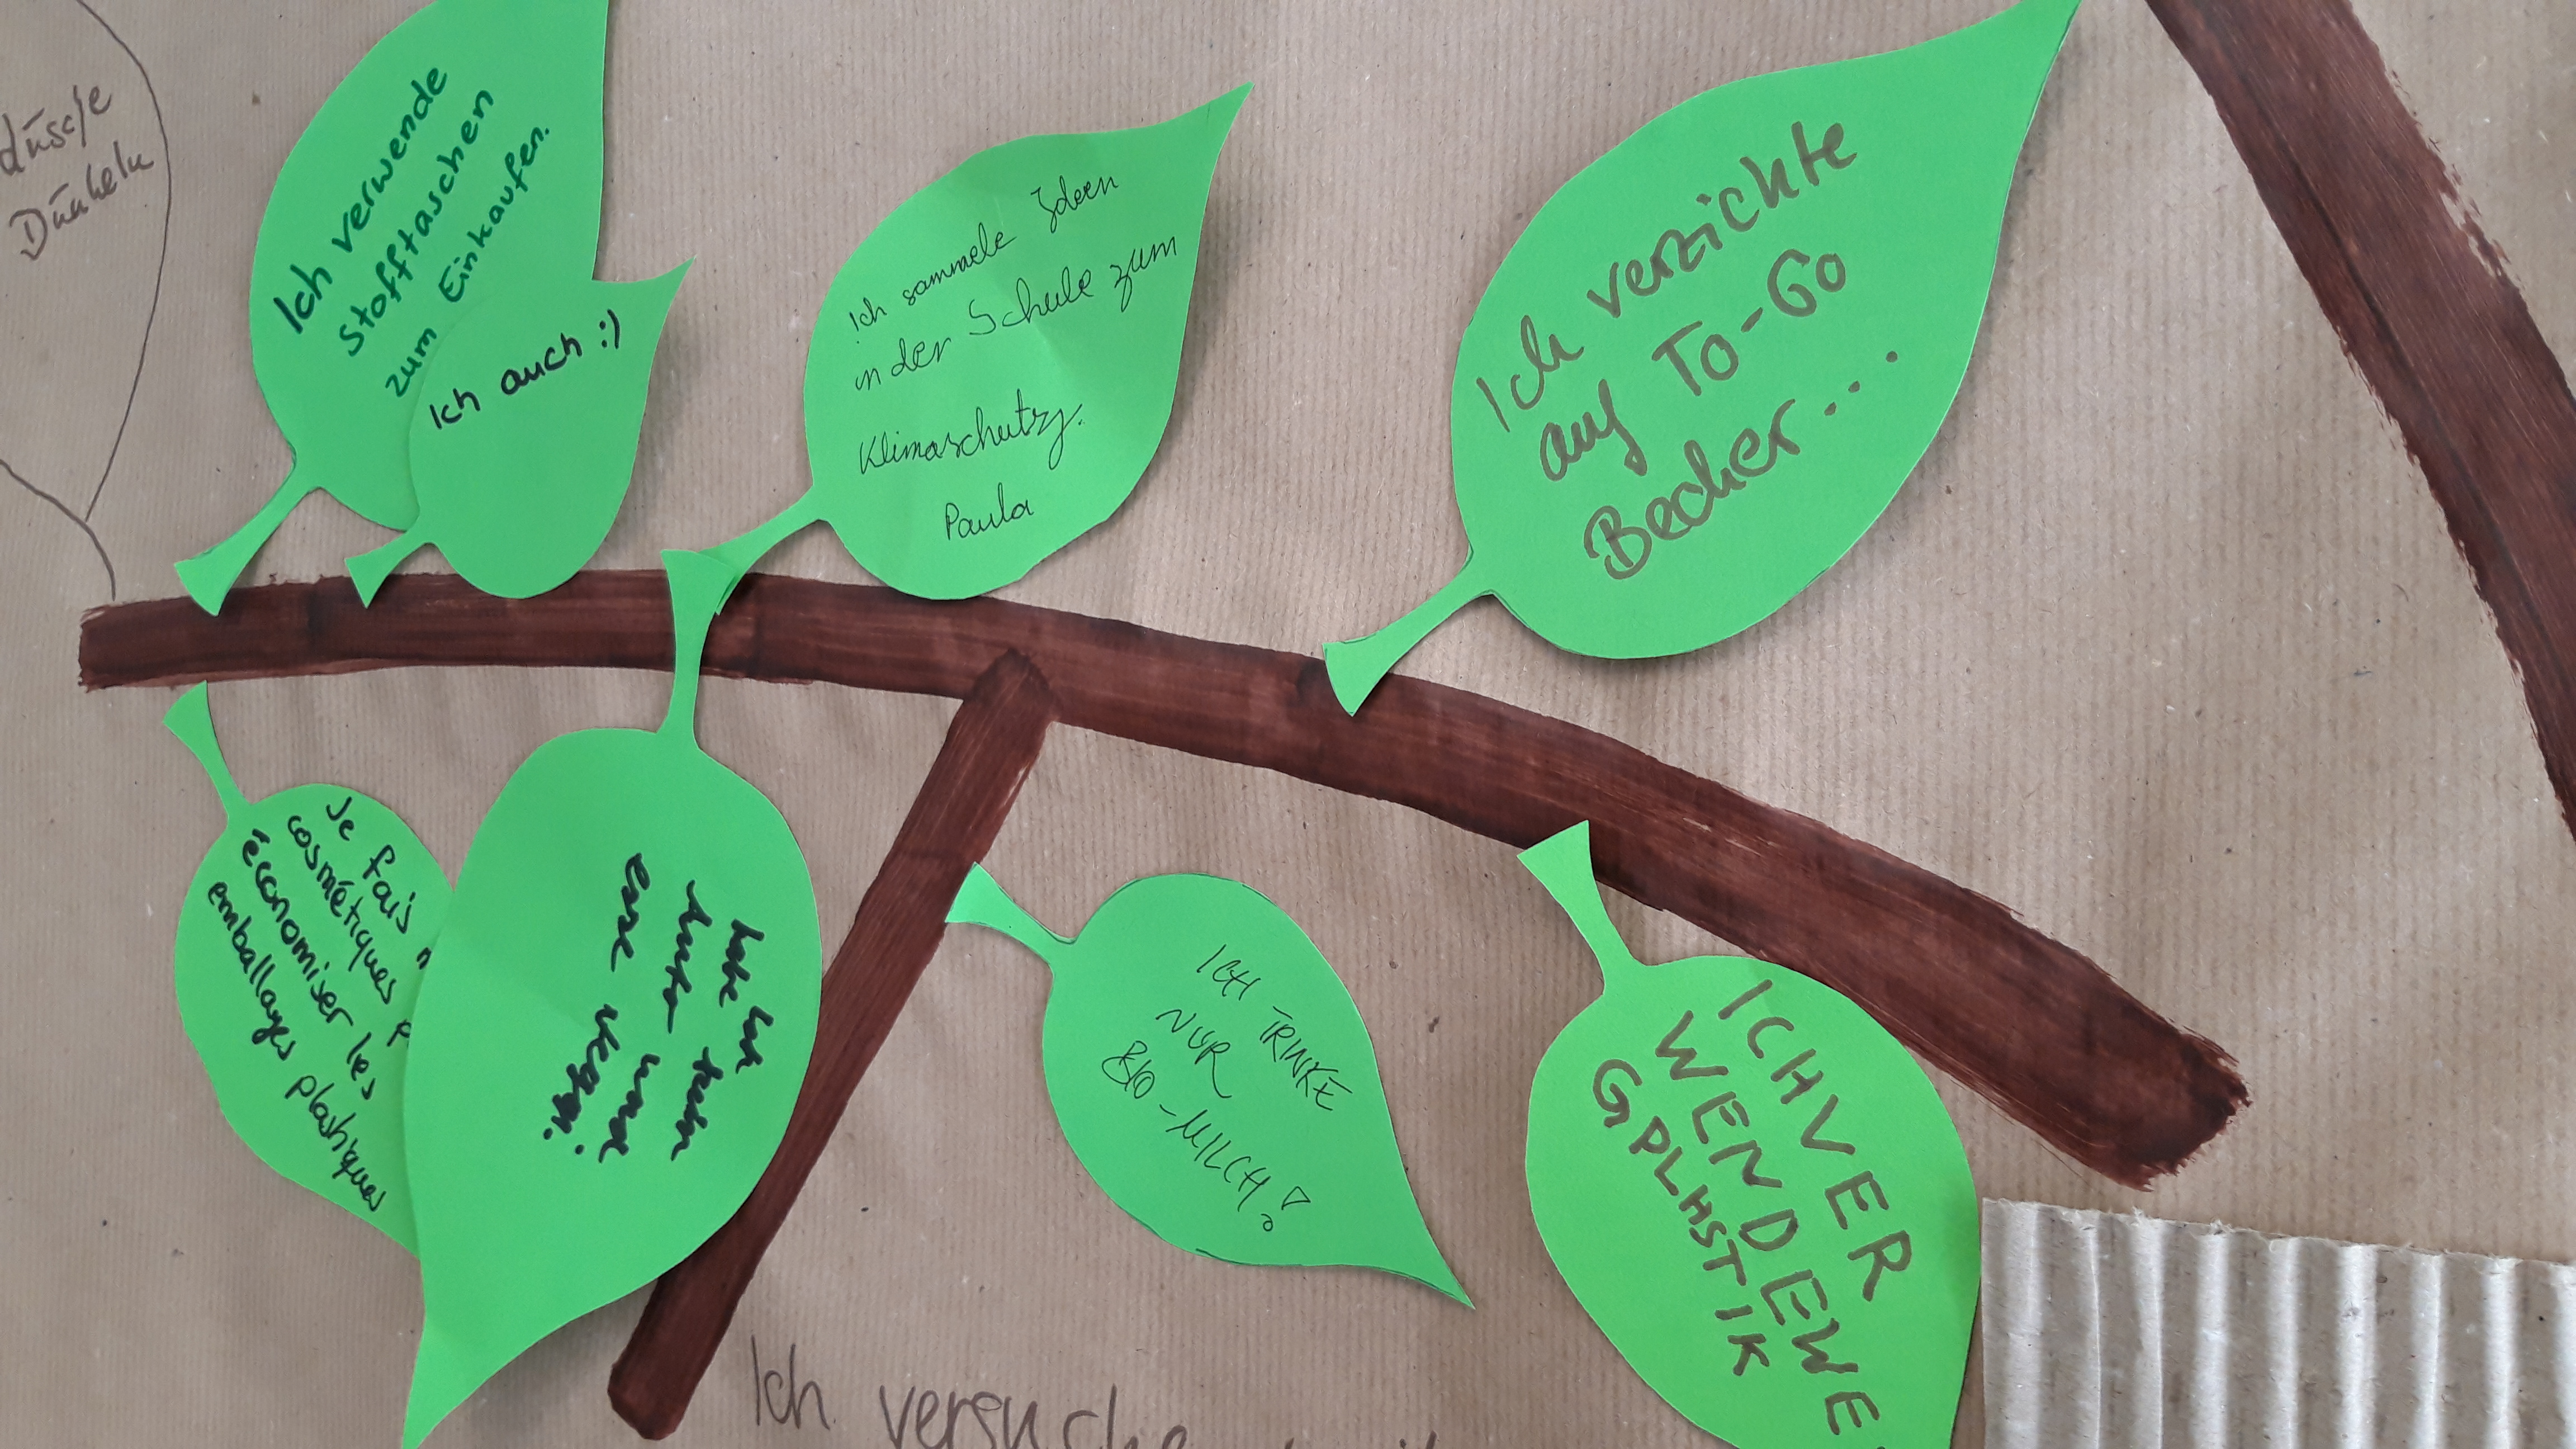 dusche
Dunkeln
Ich verwende
Stofftaschen
zum Einkaufen.
Ich auch :)
Ich sammele Ideen
in der Schule zum
Klimaschutz.
Paula
Ich verzichte
auf To-Go
Becher...
Je fais
cosmétiques p
économiser les
emballages plastiques
habe ich
kein
und
esse
ICH TRINKE
NUR
BIO-MILCH!
ICHVER
WENDEWE
GPLASTIK
Ich versuche